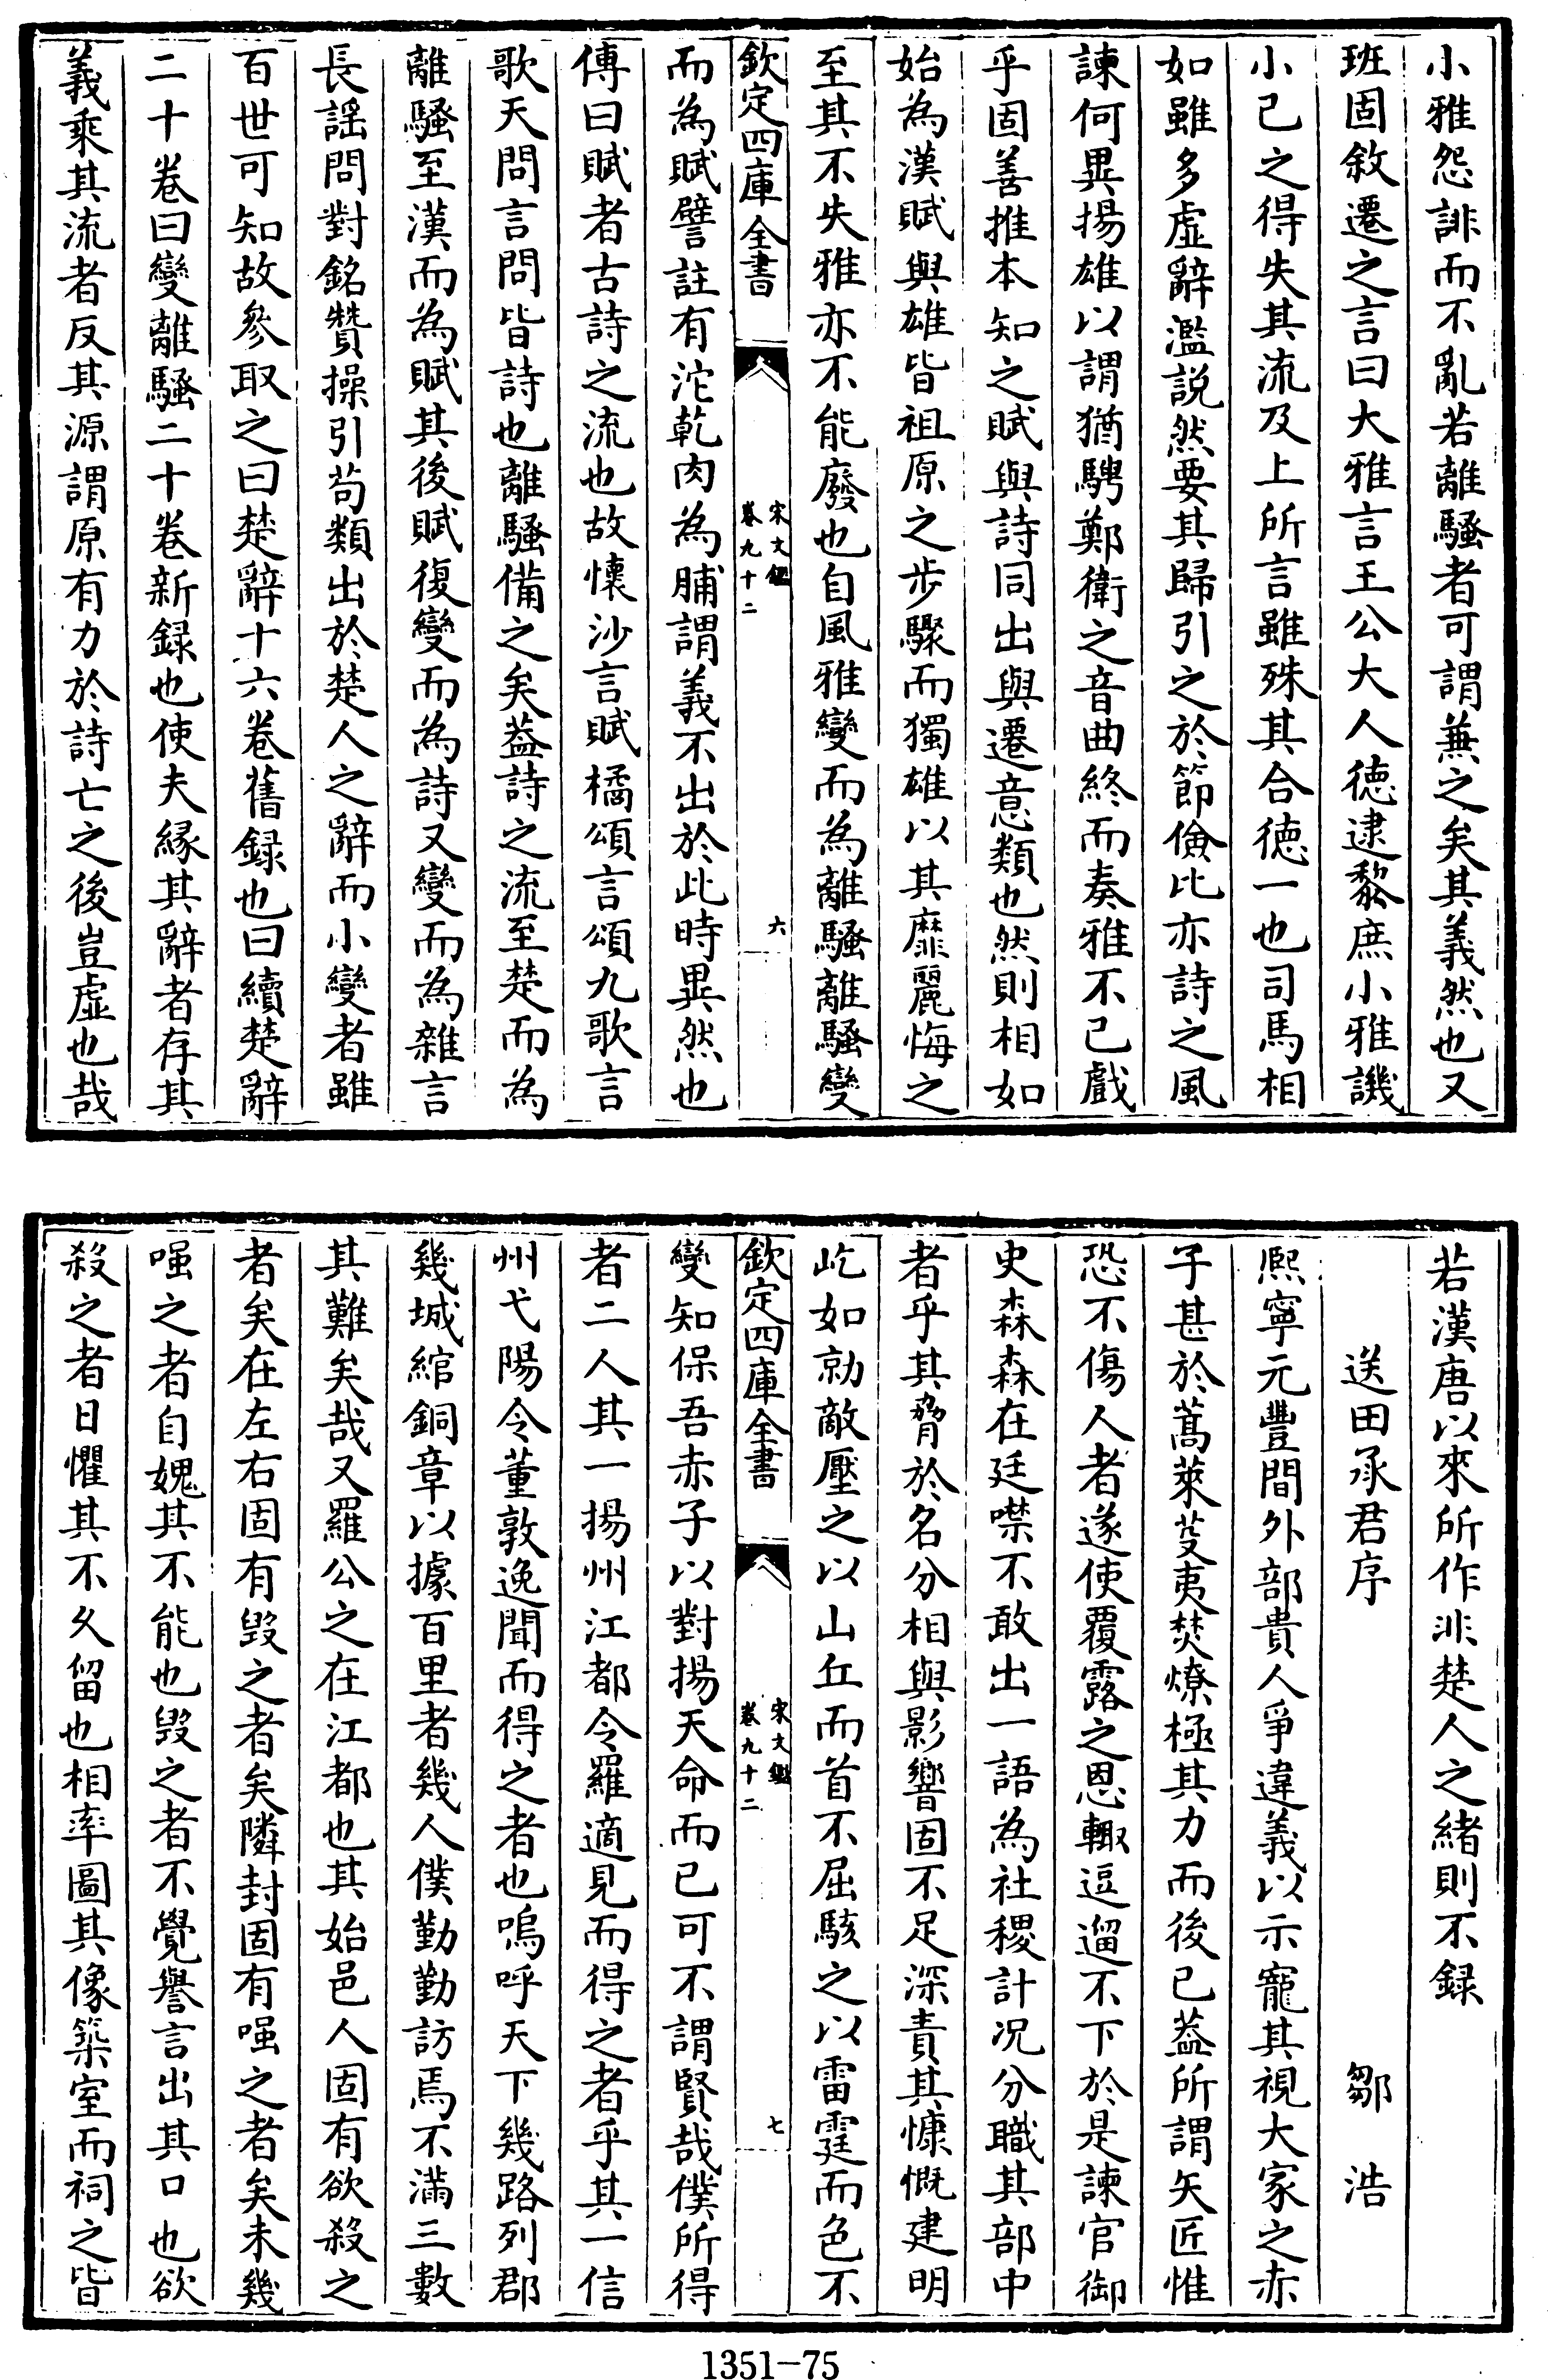 小雅怨誹而不亂若離騷者可謂兼之矣其義然也又
班固敘遷之言曰大雅言王公大人德逮黎庶小雅譏
小己之得失其流及上所言雖殊其合德一也司馬相
如雖多虛辭濫説然要其歸引之於節儉比亦詩之風
諫何異揚雄以謂猶騁鄭衛之音曲終而奏雅不已戲
乎固善推本知之賦與詩同出與遷意類也然則相如
始為漢賦與雄皆祖原之步驟而獨雄以其靡麗悔之
至其不失雅亦不能廢也自風雅變而為離騷離騷變
欽定四庫全書
宋文鑑
卷九十二
六
而為賦譬註有沱乾肉為脯謂義不出於此時異然也
傳曰賦者古詩之流也故懷沙言賦橘頌言頌九歌言
歌天問言問皆詩也離騷備之矣葢詩之流至楚而為
離騷至漢而為賦其後賦復變而為詩又變而為雜言
長謡問對銘贊操引苟類出於楚人之辭而小變者雖
百世可知故參取之曰楚辭十六卷舊録也曰續楚辭
二十卷曰變離騷二十卷新録也使夫縁其辭者存其
義乘其流者反其源謂原有力於詩亡之後豈虛也哉
若漢唐以來所作非楚人之緒則不録
送田承君序 鄒浩
熙寧元豐間外部貴人爭違義以示寵其視大家之赤
子甚於蒿萊芟夷焚燎極其力而後已葢所謂矢匠惟
恐不傷人者遂使覆露之恩輙逗遛不下於是諫官御
史森森在廷噤不敢出一語為社稷計况分職其部中
者乎其脅於名分相與影響固不足深責其慷慨建明
屹如勍敵壓之以山丘而首不屈駭之以雷霆而色不
欽定四庫全書
宋文鑑
卷九十二
七
變知保吾赤子以對揚天命而已可不謂賢哉僕所得
者二人其一揚州江都令羅適見而得之者乎其一信
州弋陽令董敦逸聞而得之者也嗚呼天下幾路列郡
幾城綰銅章以據百里者幾人僕勤勤訪焉不滿三數
其難矣哉又羅公之在江都也其始邑人固有欲殺之
者矣在左右固有毀之者矣隣封固有嗤之者矣未幾
嗤之者自媿其不能也毀之者不覺譽言出其口也欲
殺之者日懼其不久留也相率圖其像築室而祠之皆
1351-75